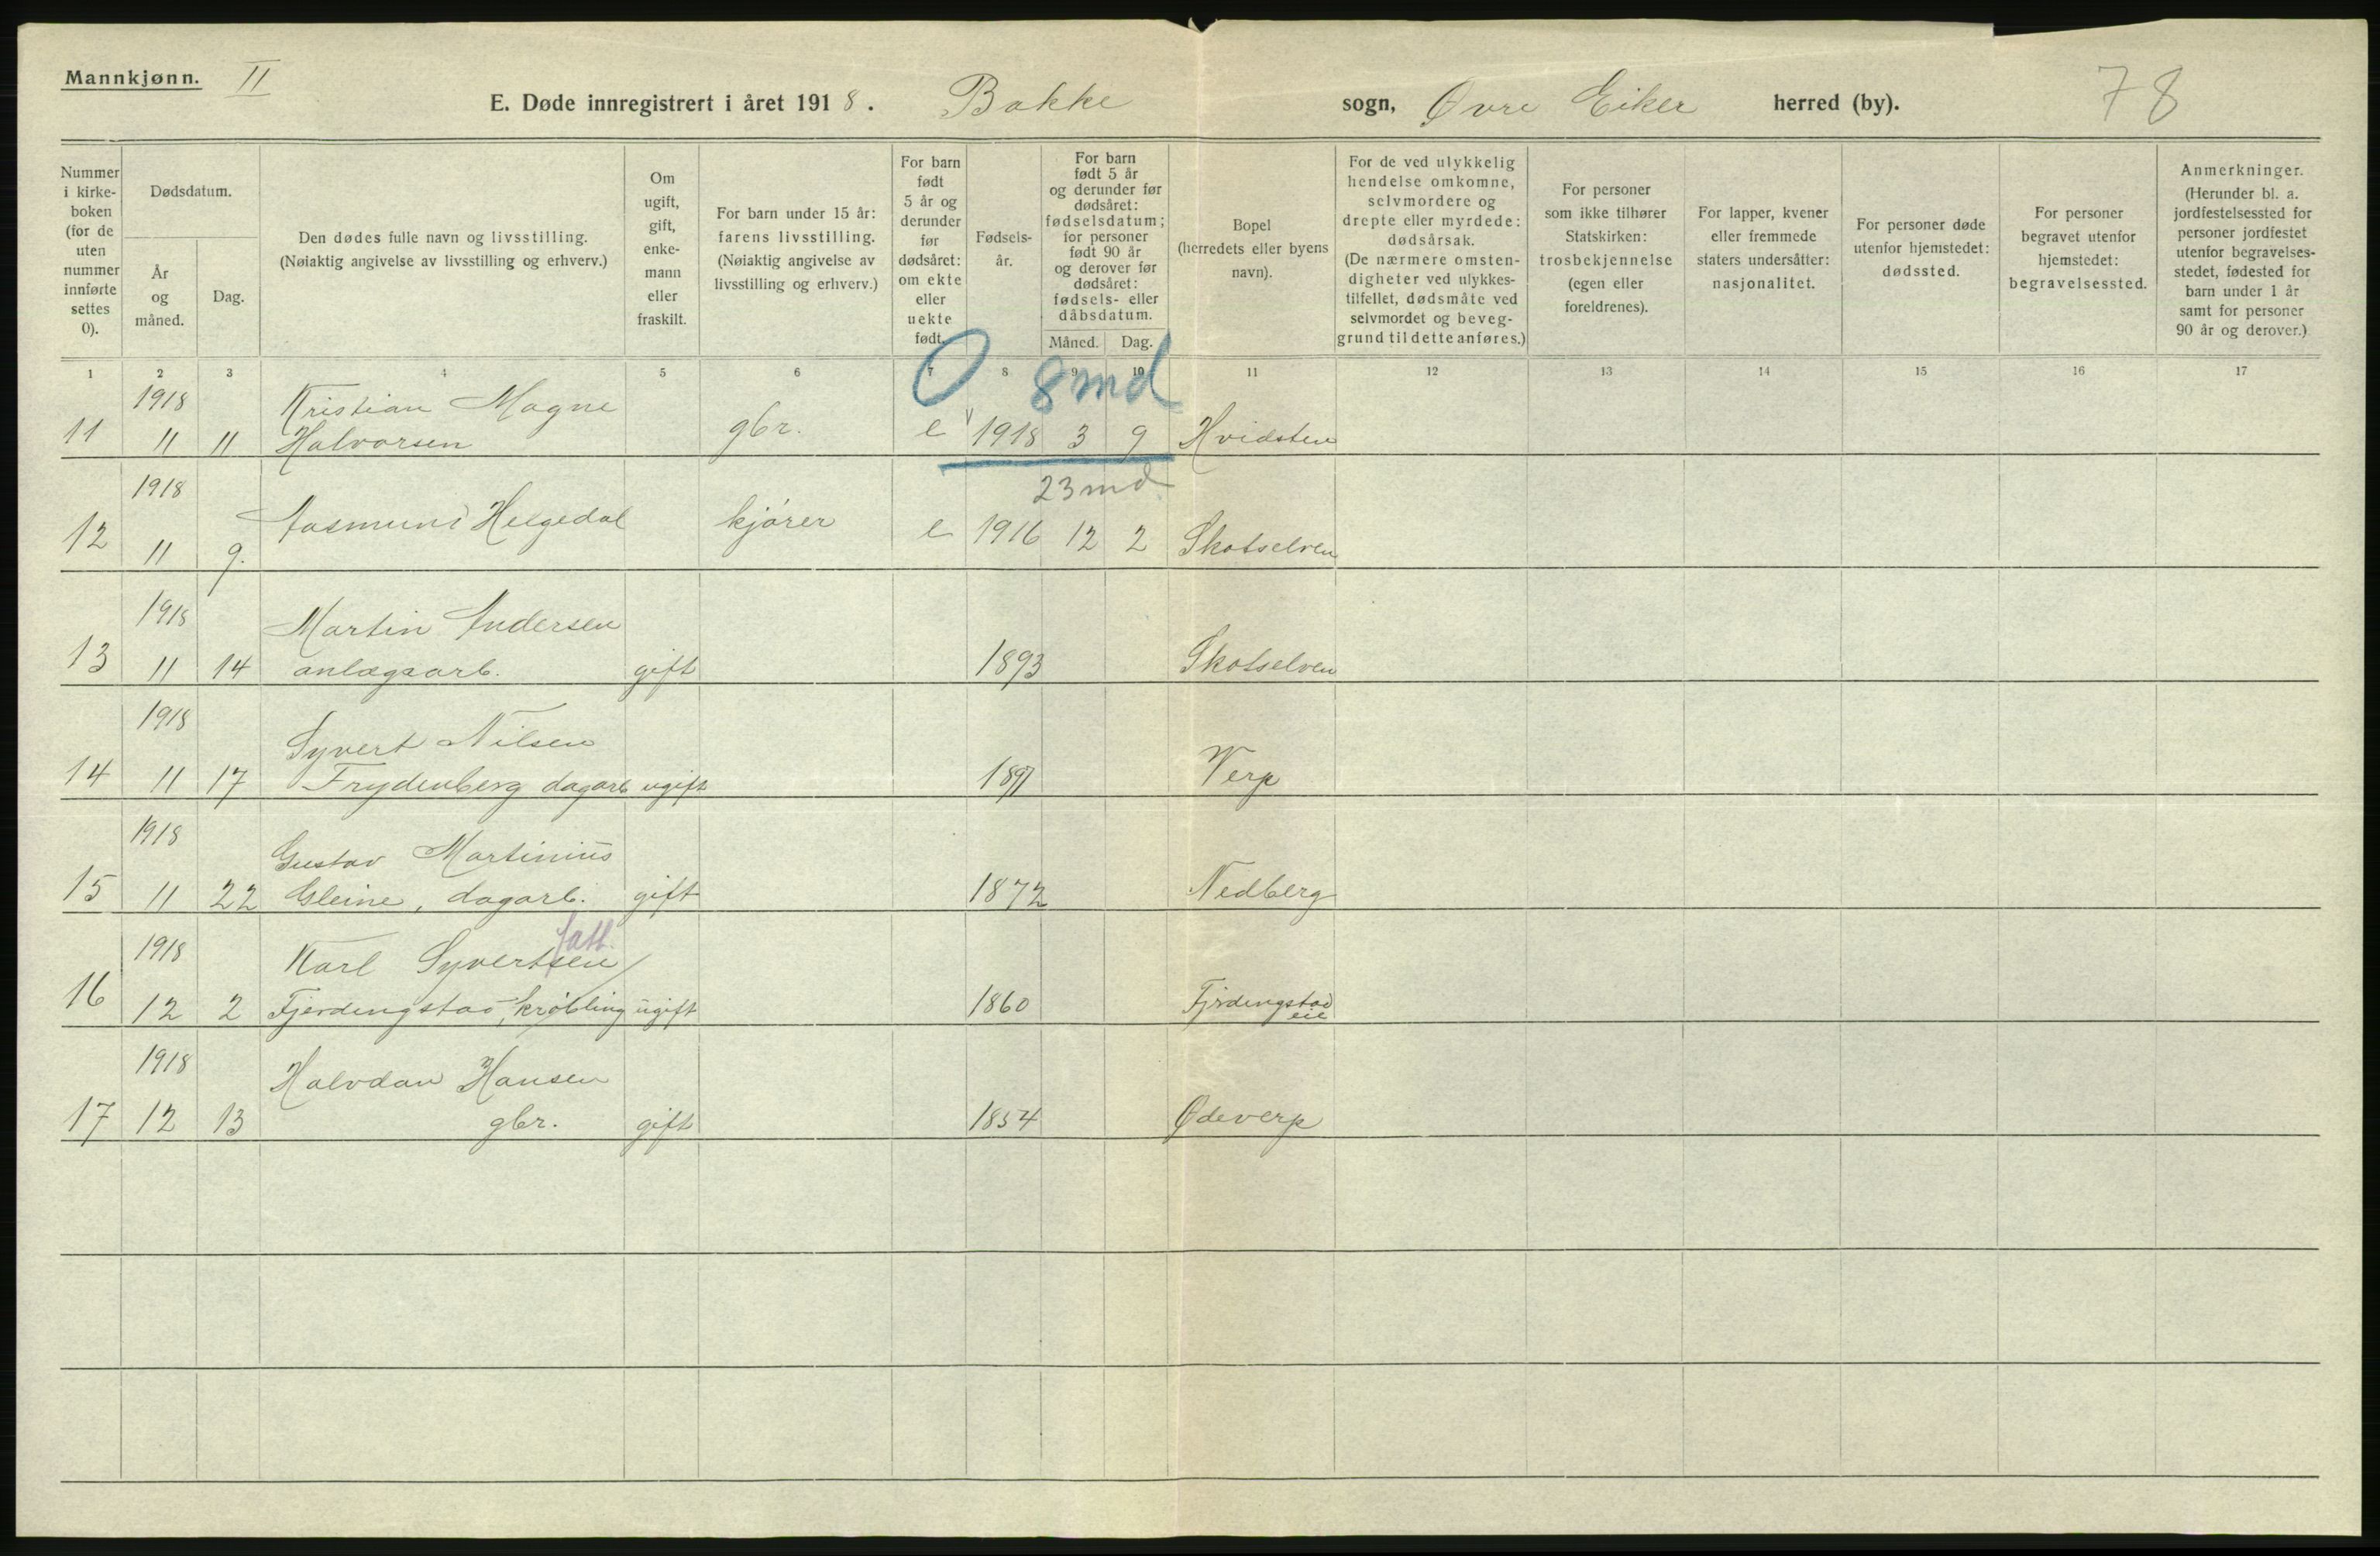 Mannkjønn. II
E. Døde innregistrert i året 1918. Bakke sogn, Øvre Eiker herred (by). 78
Nummer i kirke-boken (for de uten nummer innførte settes 0).
Dødsdatum.
År og måned.
Dag.
Den dødes fulle navn og livsstilling.
(Nøiaktig angivelse av livsstilling og erhverv.)
Om ugift, gift, enke-mann eller fraskilt.
For barn under 15 år: farens livsstilling. (Nøiaktig angivelse av livsstilling og erhverv.)
For barn født 5 år og derunder før dødsåret: om ekte eller uekte født.
Fødsels-år.
For barn født 5 år og derunder før dødsåret: fødselsdatum; for personer født 90 år og derover før dødsåret: fødsels- eller dåbsdatum.
Måned. Dag.
Bopel (herredets eller byens navn).
For de ved ulykkelig hendelse omkomne, selvmordere og drepte eller myrdede: dødsårsak. (De nærmere omsten-digheter ved ulykkes-tilfellet, dødsmåte ved selvmordet og beveg-grund til dette anføres.)
For personer som ikke tilhører Statskirken: trosbekjennelse (egen eller foreldrenes).
For lapper, kvener eller fremmede staters undersåtter: nasjonalitet.
For personer døde utenfor hjemstedet: dødssted.
For personer begravet utenfor hjemstedet: begravelsessted.
Anmerkninger. (Herunder bl. a. jordfestelsessted for personer jordfestet utenfor begravelses-stedet, fødested for barn under 1 år samt for personer 90 år og derover.)
1 2 3 4 5 6 7 8 9 10 11 12 13 14 15 16 17
0 8 md
1918 Kristian Magne
11 11 11 Halvorsen gbr. e 1918 3 9 Hvidsten
1918 23 md
12 11 9. Aasmund Helgedal kjører e 1916 12 2 Skotselven
1918 Martin Andersen
13 11 14 anlægsarb. gift 1893 Skotselven
1918 Syvert Nilsen
14 11 17 Frydenberg dagarb ugift Verp
1918 Gustav Martinius
15 11 22 Gleine, dagarb. gift 1872 Nedberg
fatt.
1918 Karl Syvertsen
16 12 2 Fjerdingstad, krøbling ugift 1860 Fjrdingstad
eie
1918 Halvdan Hansen
17 12 13 gbr. gift 1854 Ødeverp